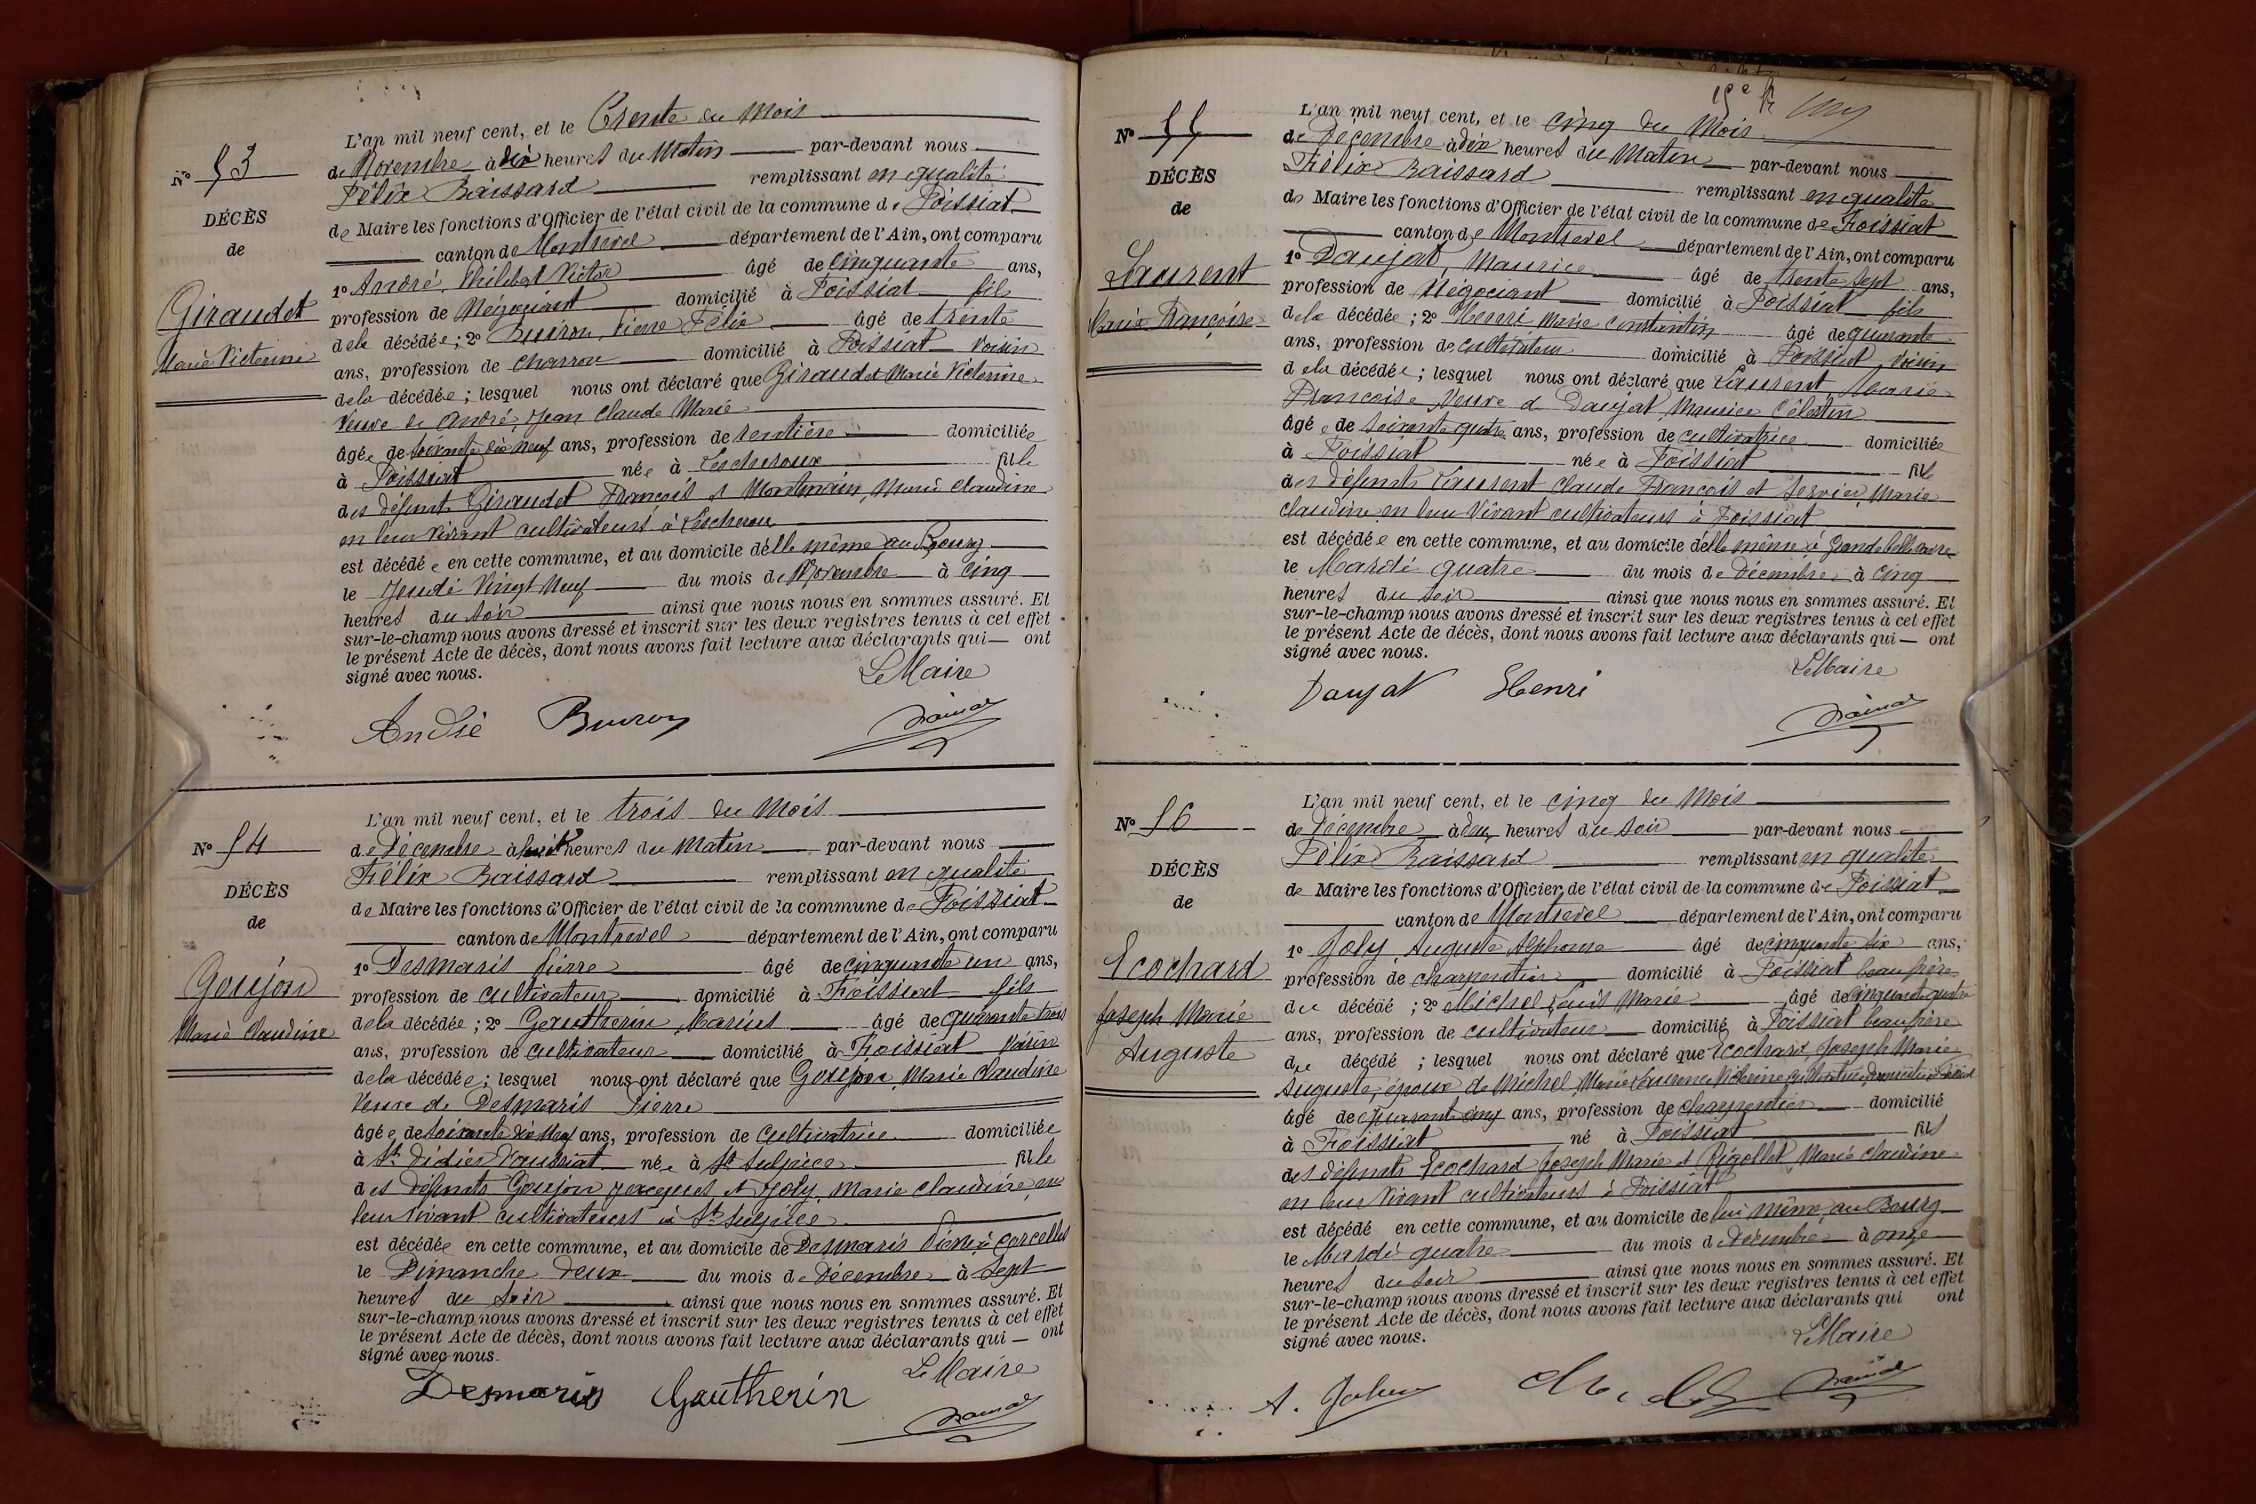 N° 53
DÉCÈS
de
Giraudet
Marie Victorine
L'an mil neuf cent, et le Trente du Mois
de Novembre à dix heures du Matin par-devant nous
Félix Raissard remplissant en qualité
de Maire les fonctions d'Officier de l'état civil de la commune de Foissiat
canton de Montrevel département de l'Ain, ont comparu
1° André, Philibert Victor âgé de cinquante ans,
profession de Négociant domicilié à Foissiat fils
de la décédée ; 2° Buiron, Pierre Félix âgé de trente
ans, profession de charron domicilié à Foissiat voisin
de la décédée ; lesquel nous ont déclaré que Giraudet Marie Victorine
Veuve de André, Jean Claude Marie
âgée de soixante dix neuf ans, profession de rentière domiciliée
à Foissiat née à Lescheroux fille
des défunts Giraudet François et Montmain, Marie Claudine
en leur vivant cultivateurs à Lescheroux
est décédée en cette commune, et au domicile d'elle même au Bourg
le Jeudi Vingt Neuf du mois de Novembre à cinq
heures du soir ainsi que nous nous en sommes assuré. Et
sur-le-champ nous avons dressé et inscrit sur les deux registres tenus à cet effet
le présent Acte de décès, dont nous avons fait lecture aux déclarants qui — ont
signé avec nous.
Le Maire
André Buiron
N° 54
DÉCÈS
de
Goujon
Marie Claudine
L'an mil neuf cent, et le trois du Mois
de Décembre à huit heures du Matin par-devant nous
Félix Raissard remplissant en qualité
de Maire les fonctions d'Officier de l'état civil de la commune de Foissiat
canton de Montrevel département de l'Ain, ont comparu
1° Desmaris Pierre âgé de cinquante un ans,
profession de cultivateur domicilié à Foissiat fils
de la décédée ; 2° Gautherin, Marius âgé de quarante trois
ans, profession de cultivateur domicilié à Foissiat voisin
de la décédée ; lesquel nous ont déclaré que Goujon, Marie Claudine
Veuve de Desmaris Pierre
âgée de soixante dix neuf ans, profession de cultivatrice domiciliée
à St Didier d'Aussiat née à St Sulpice fille
des défunts Goujon Jacques et Joly, Marie Claudine, en
leur vivant cultivateurs à St Sulpice
est décédée en cette commune, et au domicile de Desmaris Pierre à Corcelles
le Dimanche deux du mois de Décembre à Sept
heures du soir ainsi que nous nous en sommes assuré. Et
sur-le-champ nous avons dressé et inscrit sur les deux registres tenus à cet effet
le présent Acte de décès, dont nous avons fait lecture aux déclarants qui — ont
signé avec nous.
Le Maire
Desmaris Gautherin
N° 55
DÉCÈS
de
Laurent
Marie Françoise
L'an mil neuf cent, et le cinq du Mois
de Décembre à dix heures du Matin par-devant nous
Félix Raissard remplissant en qualité
de Maire les fonctions d'Officier de l'état civil de la commune de Foissiat
canton de Montrevel département de l'Ain, ont comparu
1° Daujat, Maurice âgé de trente sept ans,
profession de Négociant domicilié à Foissiat fils
de la décédée ; 2° Henri, Marie Constantin âgé de quarante
ans, profession de cultivateur domicilié à Foissiat, voisin
de la décédée ; lesquel nous ont déclaré que Laurent, Marie
Françoise, Veuve de Daujat, Maurice Célestin
âgée de soixante quatre ans, profession de cultivatrice domiciliée
à Foissiat née à Foissiat fille
des défunts Laurent Claude François et Servier, Marie
Claudine en leur Vivant cultivateurs à Foissiat
est décédée en cette commune, et au domicile d'elle même à
le Mardi quatre du mois de Décembre à cinq
heures du soir ainsi que nous nous en sommes assuré. Et
sur-le-champ nous avons dressé et inscrit sur les deux registres tenus à cet effet
le présent Acte de décès, dont nous avons fait lecture aux déclarants qui — ont
signé avec nous.
Le Maire
Daujat Henri
N° 56
DÉCÈS
de
Ecochard
Joseph Marie
Auguste
L'an mil neuf cent, et le cinq du Mois
de Décembre à deux heures du soir par-devant nous
Félix Raissard remplissant en qualité
de Maire les fonctions d'Officier de l'état civil de la commune de Foissiat
canton de Montrevel département de l'Ain, ont comparu
1° Joly, Auguste Alphonse âgé de cinquante six ans,
profession de charpentier domicilié à Foissiat beau frère
du décédé ; 2° Michel Louis Marie âgé de cinquante quatre
ans, profession de cultivateur domicilié à Foissiat beau frère
du décédé ; lesquel nous ont déclaré que Ecochard, Joseph Marie
Auguste, époux de Michel, Marie Laurence Victorine cultivatrice domiciliée à Foissiat
âgé de quarante cinq ans, profession de charpentier domicilié
à Foissiat né à Foissiat fils
des défunts Ecochard Joseph Marie et Rigollet, Marie Claudine
en leur Vivant cultivateurs à Foissiat
est décédé en cette commune, et au domicile de lui même, au Bourg
le Mardi quatre du mois de Décembre à onze
heures du soir ainsi que nous nous en sommes assuré. Et
sur-le-champ nous avons dressé et inscrit sur les deux registres tenus à cet effet
le présent Acte de décès, dont nous avons fait lecture aux déclarants qui ont
signé avec nous.
Le Maire
A. Joly